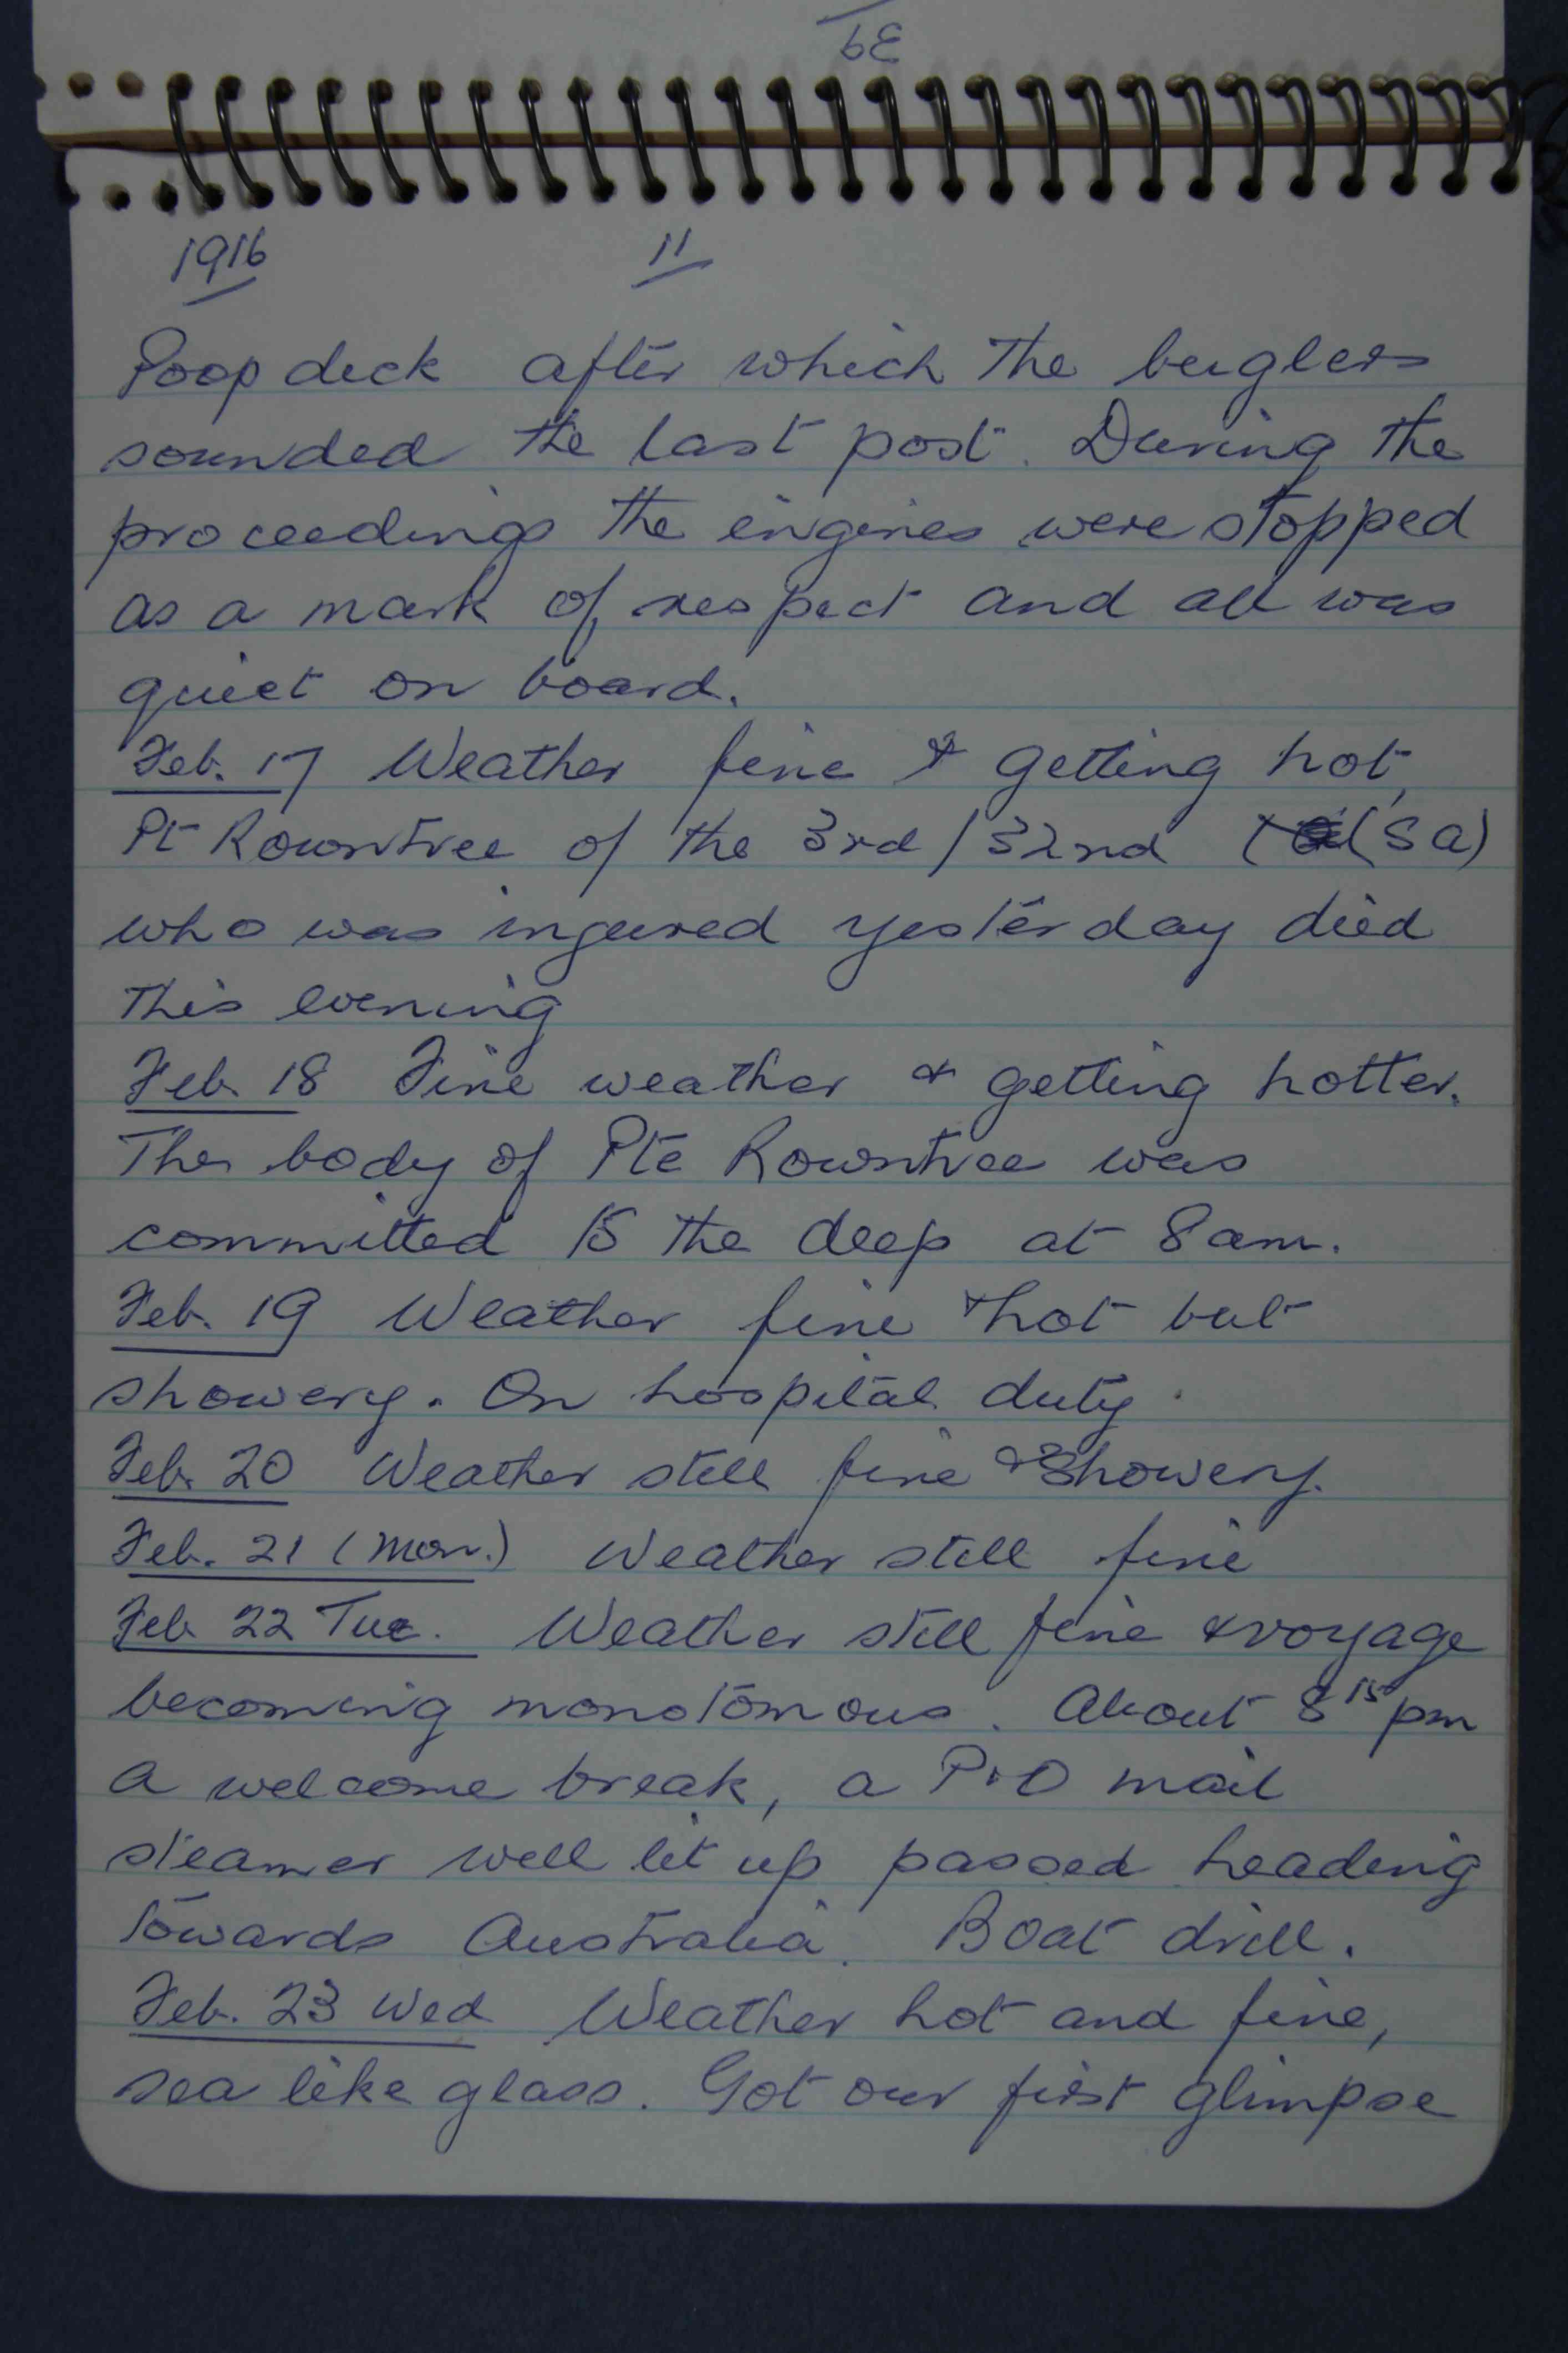 39
1916 11
Poop deck after which the buglers
sounded the last post. During the
proceedings the engines were stopped
as a mark of respect and all was
quiet on board.
Feb. 17 Weather fine & getting hot,
Pt Rowntree of the 3rd/32nd (SA)
who was ingured yesterday died
this evening
Feb. 18 Fine weather & getting hotter.
The body of Pte Rowntree was
committed to the deep at 8am.
Feb. 19 Weather fine & hot but
showery. On hospital duty.
Feb. 20 Weather still fine & showery.
Feb. 21 (Mon.) Weather still fine
Feb 22 Tue. Weather still fine & voyage
becoming monotomous. About 8 15 pm
a welcome break, a P&O mail
steamer well lit up passed heading
towards Australia. Boat drill.
Feb. 23 Wed Weather hot and fine,
sea like glass. Got our first glimpse